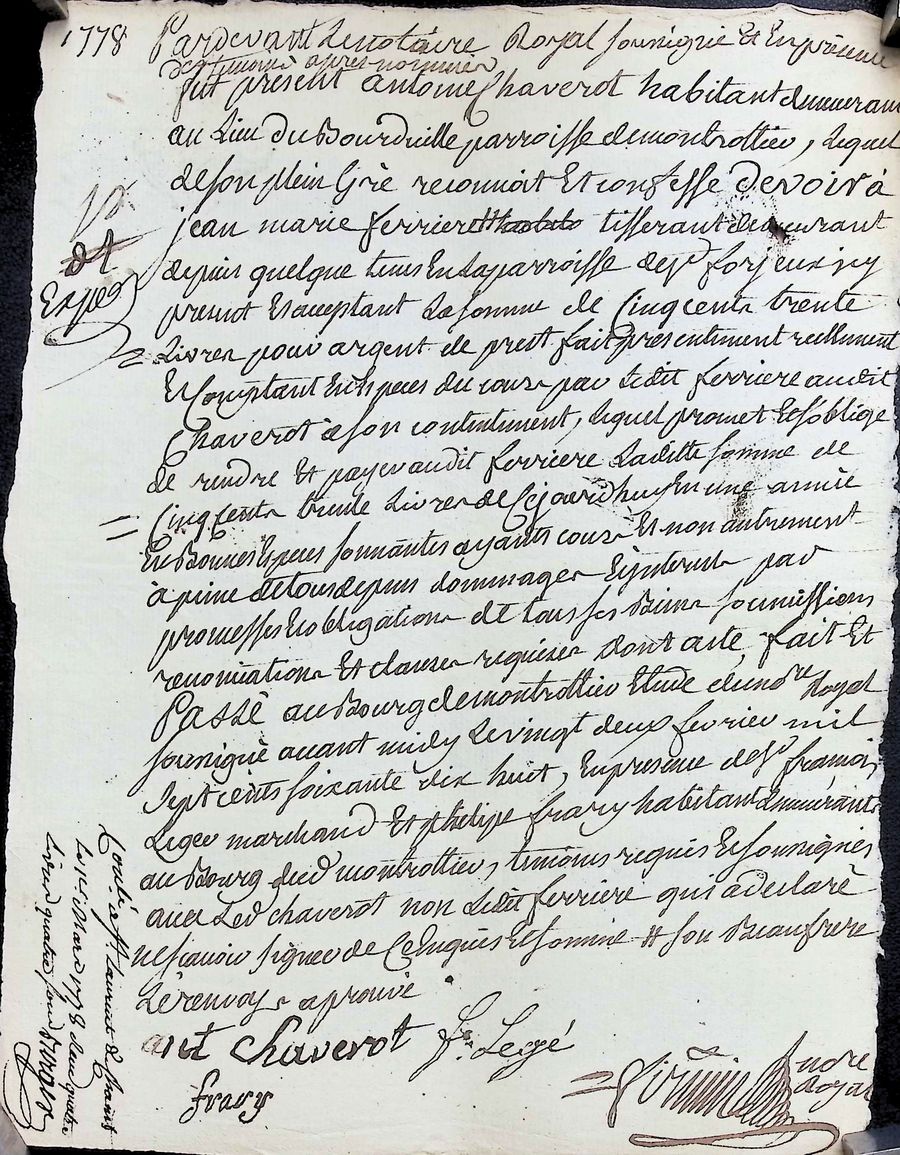 1778
Pardevant Le notaire Royal soussigné Et En présence
des temoins apres nommés
fut présent antoine Chaverot habitant demeurant
au Lieu du Bourdeille parroisse de montrottier, Lequel
de son plein Gré reconnoit Et confesse devoir à
jean marie ferriere tisserant demeurant
depuis quelque tems En La parroisse de St forjeux icy
présent Et acceptant La somme de Cinq cents trente
Livres pour argent de prest fait présentement réellement
Et Comptant En Especes du cours par Ledit ferriere audit
Chaverot à son contentement, Lequel promet Et s'oblige
de rendre Et payer audit ferriere Laditte somme de
Cinq Cents trente Livres de Cejourdhuy En une année
En Bonnes Especes sonnantes ayants cours Et non autrement
à peine de tous depens dommages Et interests par
promesses Et obligations de tous ses Biens soumissions
renonciations Et clauses requises dont acte, fait Et
Passé au Bourg de montrottier Etude du nore Royal
soussigné avant midy Le vingt deux fevrier mil
sept cents soixante dix huit, En presence de Sr françois
Leger marchand Et philipe frary habitants demeurants
au Bourg dud montrottier, temoins requis Et soussignés
avec Led chaverot non Ledit ferriere qui a declaré
ne scavoir signer de Ce Enquis Et sommé # son Beaufrere
Le renvoy aprouvé
ant chaverot fs. Legé
frary
nore
Royal
Expéd
Controllé à St Laurent de Chamousset
Le 1er Mars 1778 Reçu quatre
Livres quatre sous